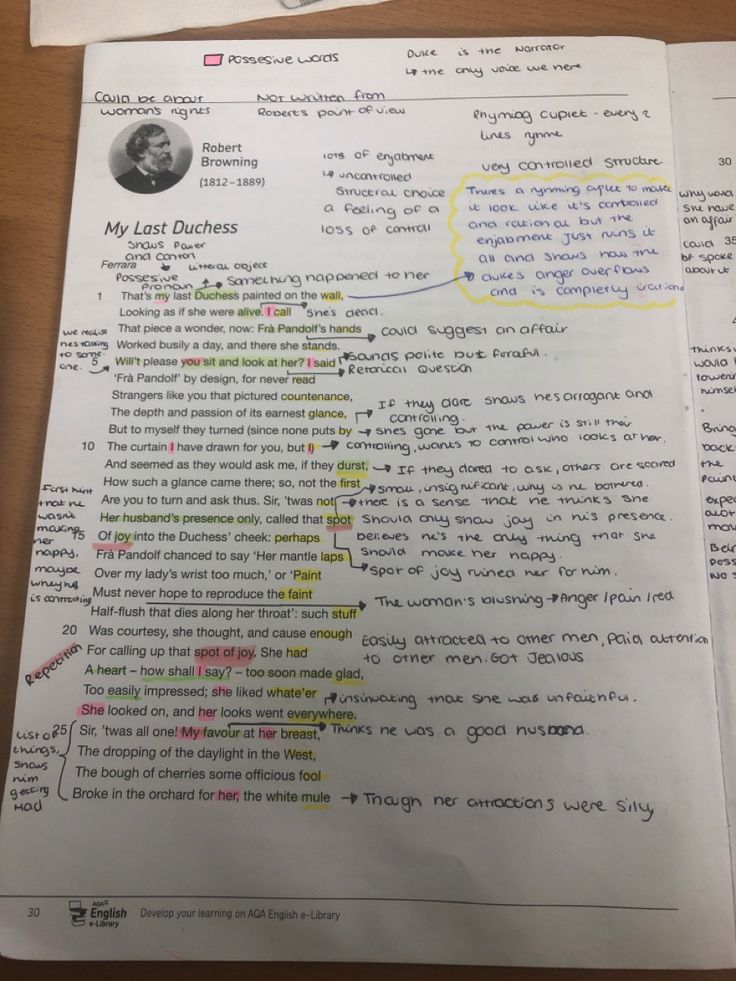 Possesive words
Duke is the Narrator
↳ the only voice we here
Could be about
woman's rights
NOT written from
Robert's point of view
Rhyming cuplet - every 2
lines ryhme
Robert
Browning
(1812–1889)
lots of enjabment
↳ uncontrolled
Structral choice
a feeling of a
loss of control
very controlled structure
Theres a ryhming cuplet to make
it look like it's controlled
and rational but the
enjabment just ruins it
all and shows how the
dukes anger overflows
and is completly irational
My Last Duchess
Shows Power
and control
Ferrara
litteral object
Possesive
pronoun
Something happened to her
1 That's my last Duchess painted on the wall,
Looking as if she were alive. I call
She's dead.
That piece a wonder, now: Frà Pandolf's hands
could suggest an affair
Worked busily a day, and there she stands.
we realise
hes talking
to some
one.
5 Will't please you sit and look at her? I said
Sounds polite but forceful.
Retorical Question
'Frà Pandolf' by design, for never read
Strangers like you that pictured countenance,
The depth and passion of its earnest glance,
If they dare shows hes arrogant and
controlling.
But to myself they turned (since none puts by
she's gone but the power is still their
10 The curtain I have drawn for you, but I)
controlling, wants to control who looks at her.
And seemed as they would ask me, if they durst,
If they dared to ask, others are scared
How such a glance came there; so, not the first
small, insignificant, why is he bothered.
Are you to turn and ask thus. Sir, 'twas not
there is a sense that he thinks she
Her husband's presence only, called that spot
Should only show joy in his presence.
15 Of joy into the Duchess' cheek: perhaps
believes he's the only thing that she
Should make her happy.
Frà Pandolf chanced to say 'Her mantle laps
Spot of joy ruined her for him.
Over my lady's wrist too much,' or 'Paint
Must never hope to reproduce the faint
The woman's blushing → Anger / pain / red
Half-flush that dies along her throat': such stuff
First hint
that he
wasn't
making
her
happy,
maybe
why he
is controlling
20 Was courtesy, she thought, and cause enough
Easily attracted to other men, Paid attention
to other men. Got Jealous
For calling up that spot of joy. She had
Repetition
A heart – how shall I say? – too soon made glad,
Too easily impressed; she liked whate'er
insinuating that she was unfaithful.
She looked on, and her looks went everywhere.
25 Sir, 'twas all one! My favour at her breast,
Thinks he was a good husband.
The dropping of the daylight in the West,
The bough of cherries some officious fool
Broke in the orchard for her, the white mule
Though her attractions were silly
List of
things,
shows
him
getting
Mad
30
AQA
English
e-Library
Develop your learning on AQA English e-Library
30
35
why would
she have
an affair
could
of spoke
about it
Thinks
would
himse
Bring
back
the